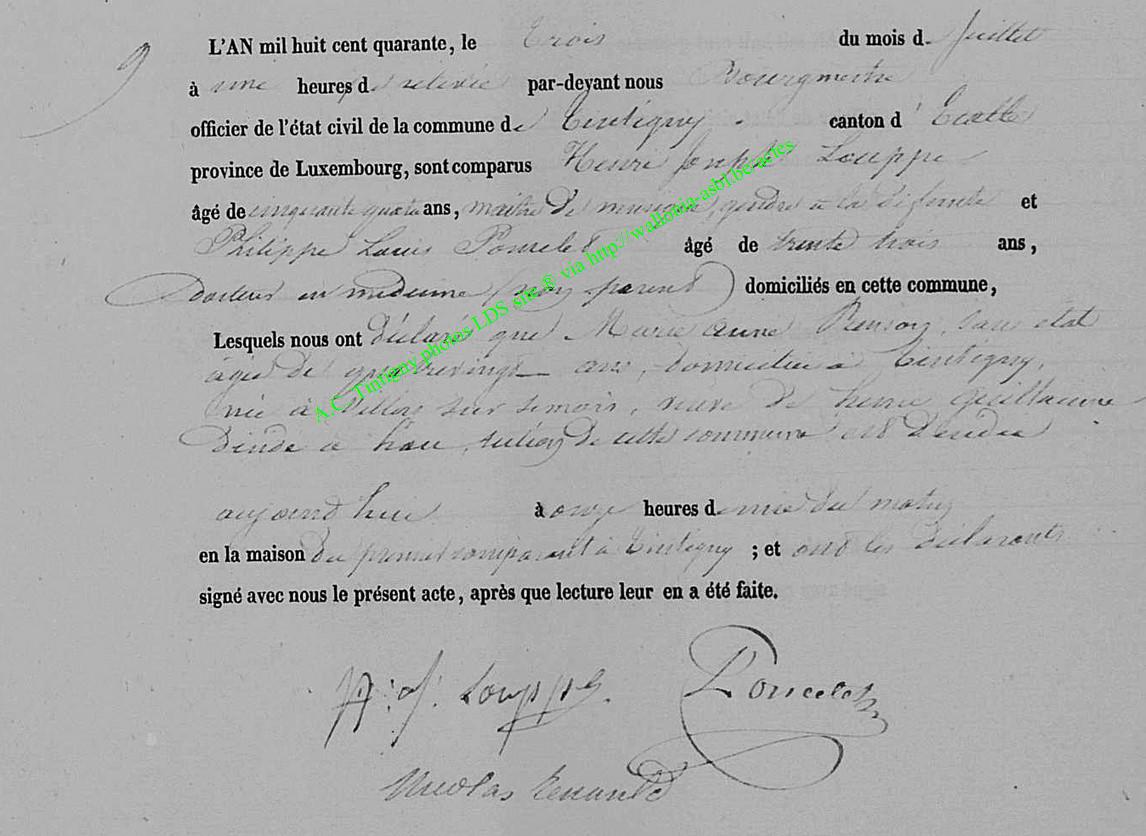 9
L'AN mil huit cent quarante, le trois du mois de Juillet
à une heures de relevée par-devant nous Bourgmestre
officier de l'état civil de la commune de Tintigny canton d' Etalle
province de Luxembourg, sont comparus Henri Joseph Louppe
âgé de cinquante quatre ans, maître de musique, gendre à la défunte et
Philippe Louis Poncelet âgé de trente trois ans,
Docteur en médecine (non parent) domiciliés en cette commune,
Lesquels nous ont déclaré que Marie anne sans état
âgée de quatrevingt ans, domiciliée à Tintigny,
née à Villers sur semois, veuve de henri Guillaume
de cette commune est décédée
aujourd'hui à onze heures demie du matin
en la maison du premier comparant à Tintigny ; et ont les déclarants
signé avec nous le présent acte, après que lecture leur en a été faite.
H. J. Louppe. Poncelet
Nicolas
A.C. Tintigny photos LDS site 8 via http://wallonia-asbl.be/actes